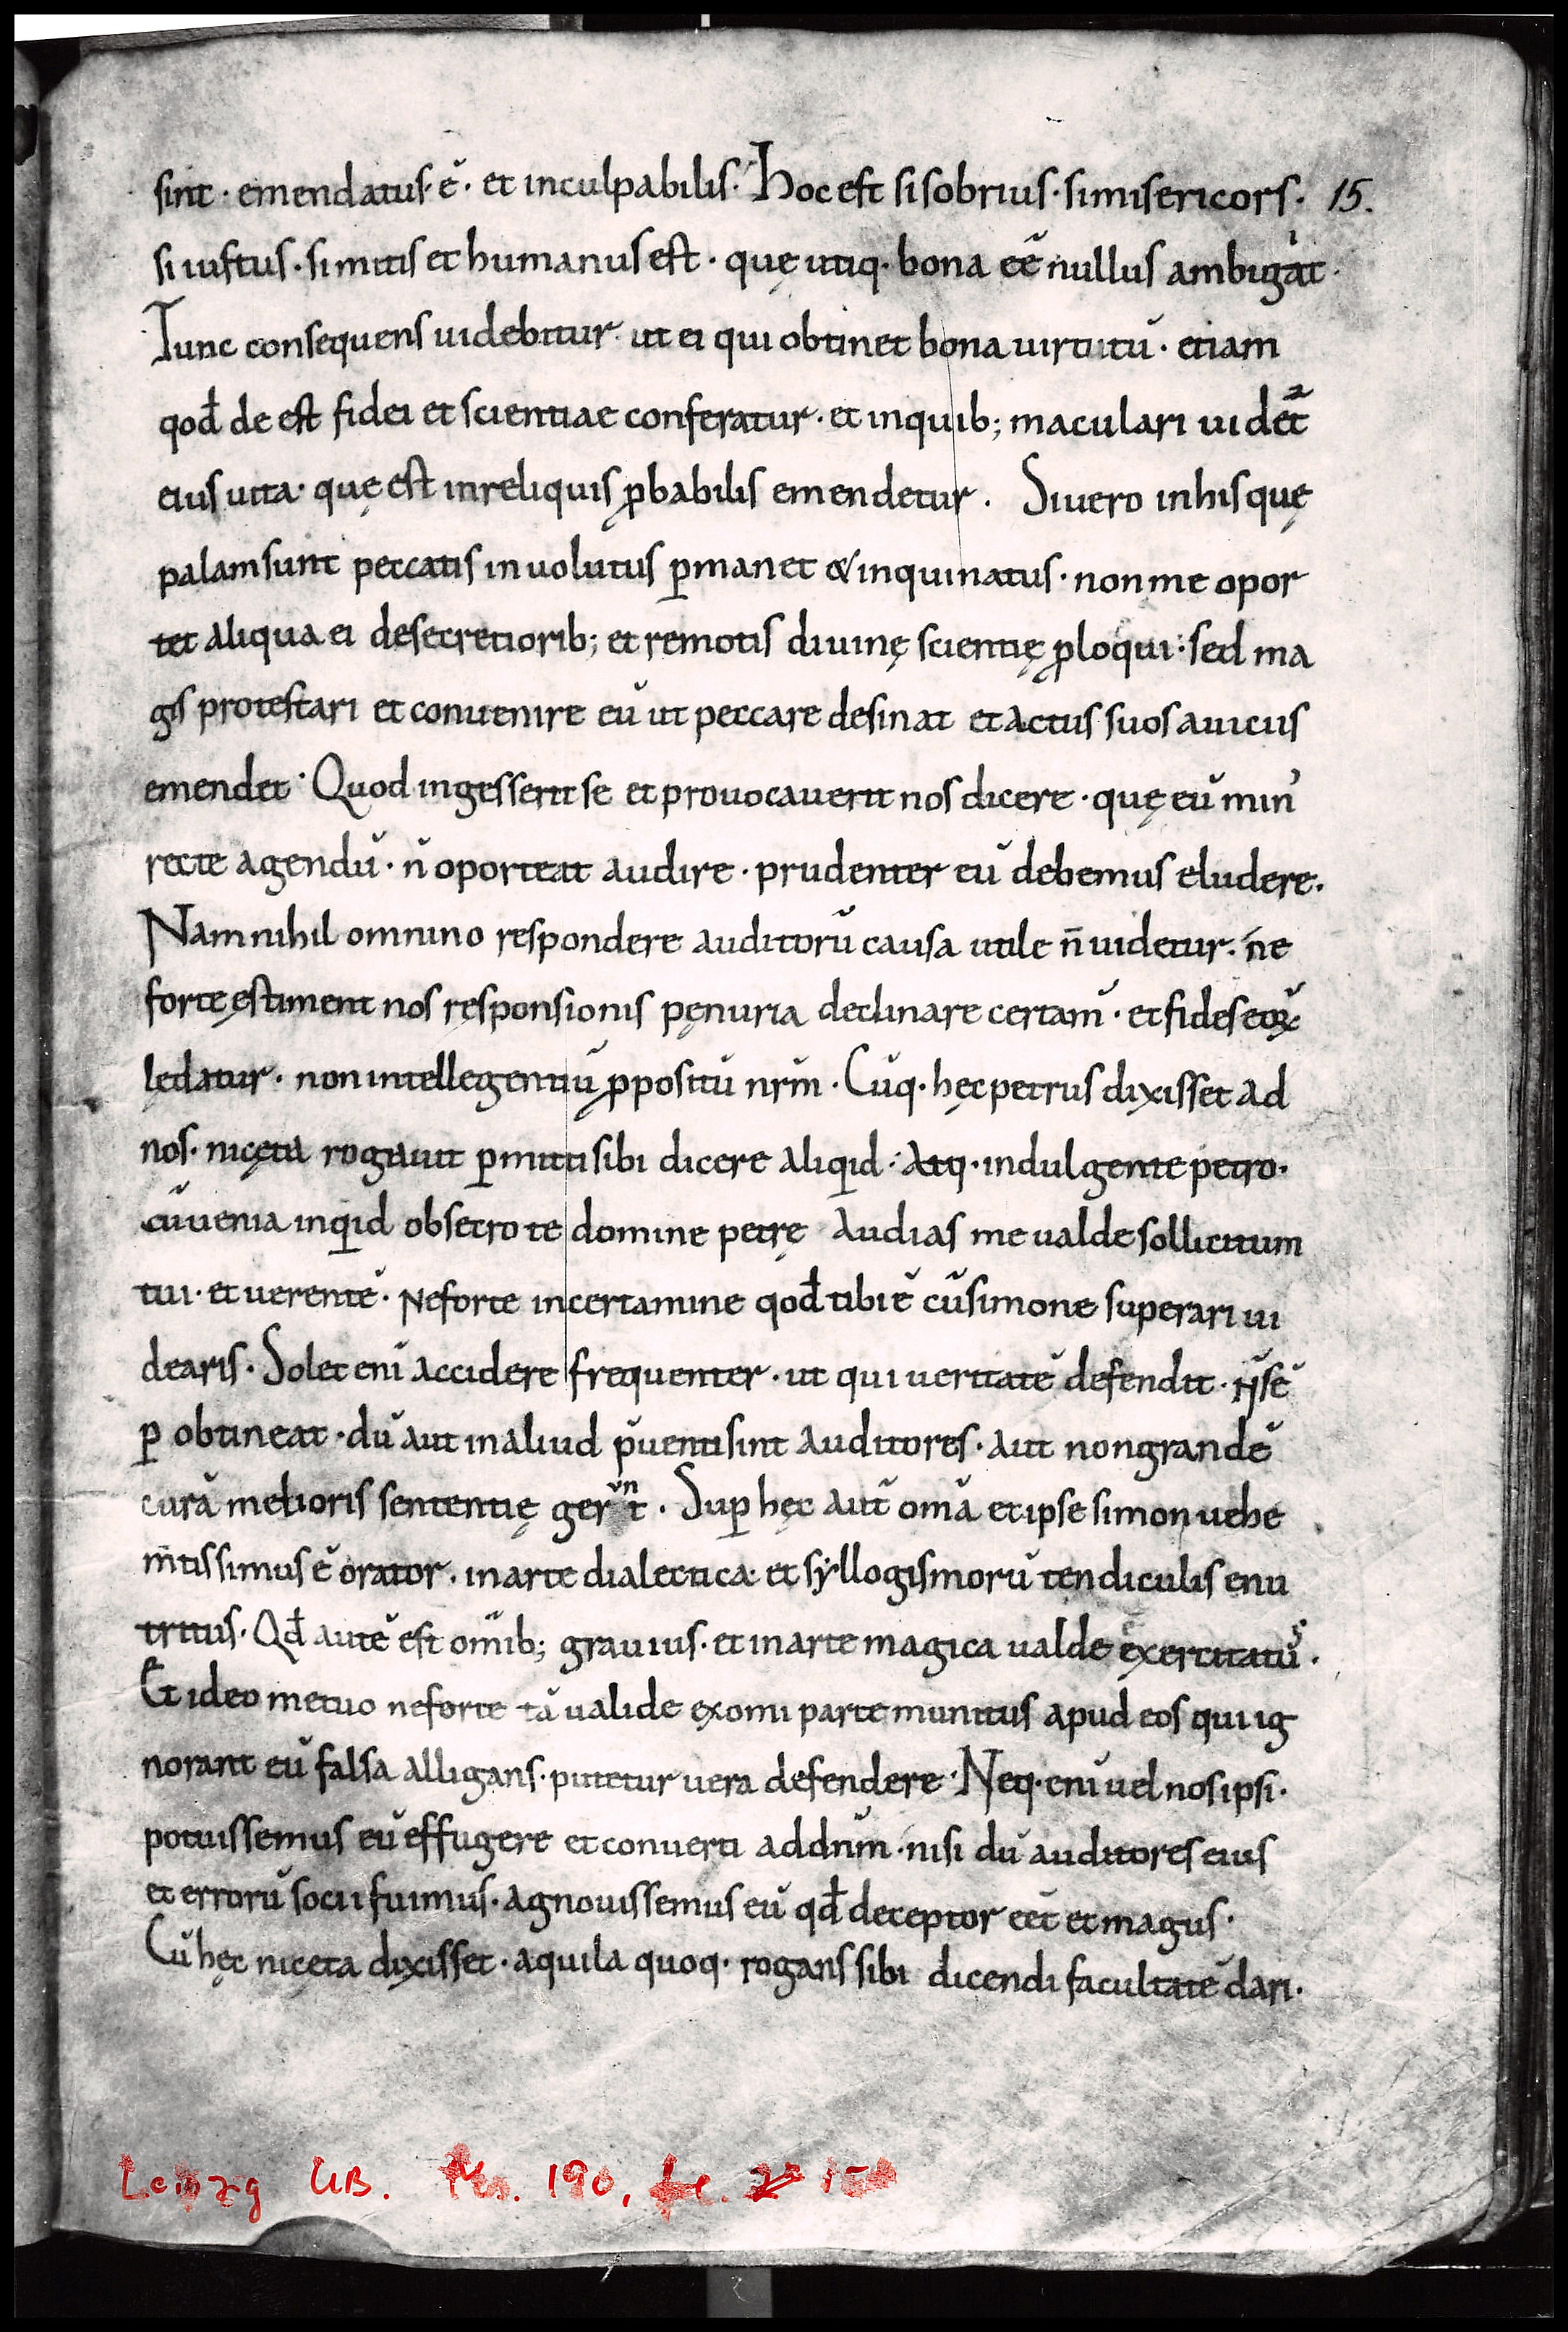 sint · emendatus · ē · et inculpabilis · Hoc est si sobrius · si misericors · 15.
si iustus · si mitis et humanus est · quę utiq· bona eē nullus ambigat ·
Tunc consequens uidebitur · ut ei qui obtinet bona uirtutū · etiam
qod̄ de est fidei et scientiae conferatur · et inquib; maculari uidet̄
eius uita · quę est inreliquis ꝓbabilis emendetur . Si uero in his quę
palam sunt peccatis inuolutus ꝑmanet & inquinatus · non me opor
tet aliqua ei de secretiorib; et remotis diuinę scientię ꝓloqui · sed ma
gis protestari et conuenire eū ut peccare desinat et actus suos auicus
emendet · Quod ingesserit se et prouocauerit nos dicere · quę eū min᾿
recte agendū · n̄ oporteat audire · prudenter eū debemus eludere.
Nam nihil omnino respondere auditorū causa utile n̄ uidetur · ne
forte ęstiment nos ręsponsionis pęnuria declinare certam̄ · et fides eoꝝ
lędatur · non intellegentiū ꝓpositū nr̄m · Cūq· hęc petrus dixisset ad
nos · nicęta rogauit ꝑmitti sibi dicere aliqid · Atq· indulgente petro ·
cū uenia inqid obsecro te domine petrę Audias me ualde sollicitum
tui · et uerentē · Ne forte in certamine qod̄ tibi ē cū simone superari ui
dearis · Solet eni accidere frequenter · ut qui ueritatē defendit · n̄ sē
ꝑ obtineat · dū aut in aliud p̄uenti sint auditores · aut non grandē
curā melioris sententię gerunt · Suꝑ hęc aut̄ om̄a et ipse simon uehe
m̄tissimus ē orator · in arte dialectica · et syllogismorū tendiculis enu
tritus · Qd̄ autē est om̄ib; grauius · et in arte magica ualde exercitatus ·
Et ideo metuo ne forte tā ualide ęx omi parte munitus apud eos qui ig
norant eū falsa alligans · putetur uera defendere · Neq· eni uel nos ipsi ·
potuissemus eū effugere et conuerti ad dnm̄ · nisi dū auditores eius
et errorū socii fuimus · agnouissemus eū qd̄ deceptor eēt et magus ·
Cū hęc niceta dixisset · aquila quoq· rogans sibi dicendi facultatē dari ·
Leipzig UB. Rep. 190, fol. 15